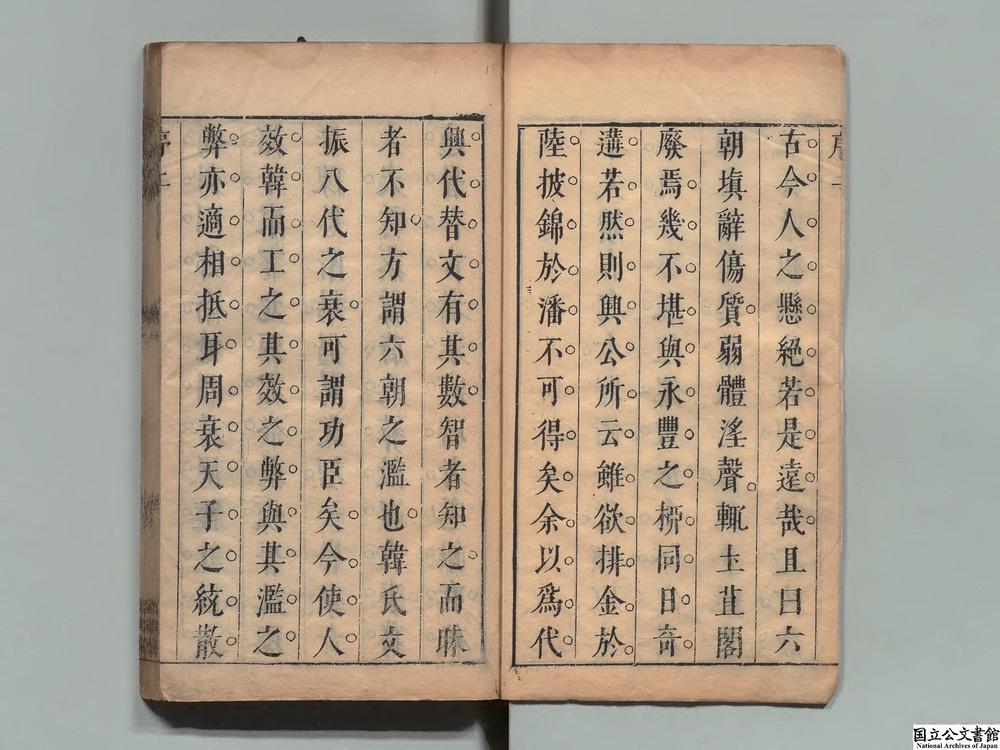 古今人之懸絕若是遠哉且曰六
朝塡辭傷質弱體淫聲輒土苴閣
廢焉幾不堪與永豐之柳同日奇
遘若然則興公所云雖欲排金於
陸披錦於潘不可得矣余以爲代
興代替文有其數智者知之而眛
者不知方謂六朝之濫也韓氏文
振八代之衰可謂功臣矣今使人
效韓而工之其效之弊與其濫之
弊亦適相抵耳周衰天子之統散
国立公文書館
National Archives of Japan